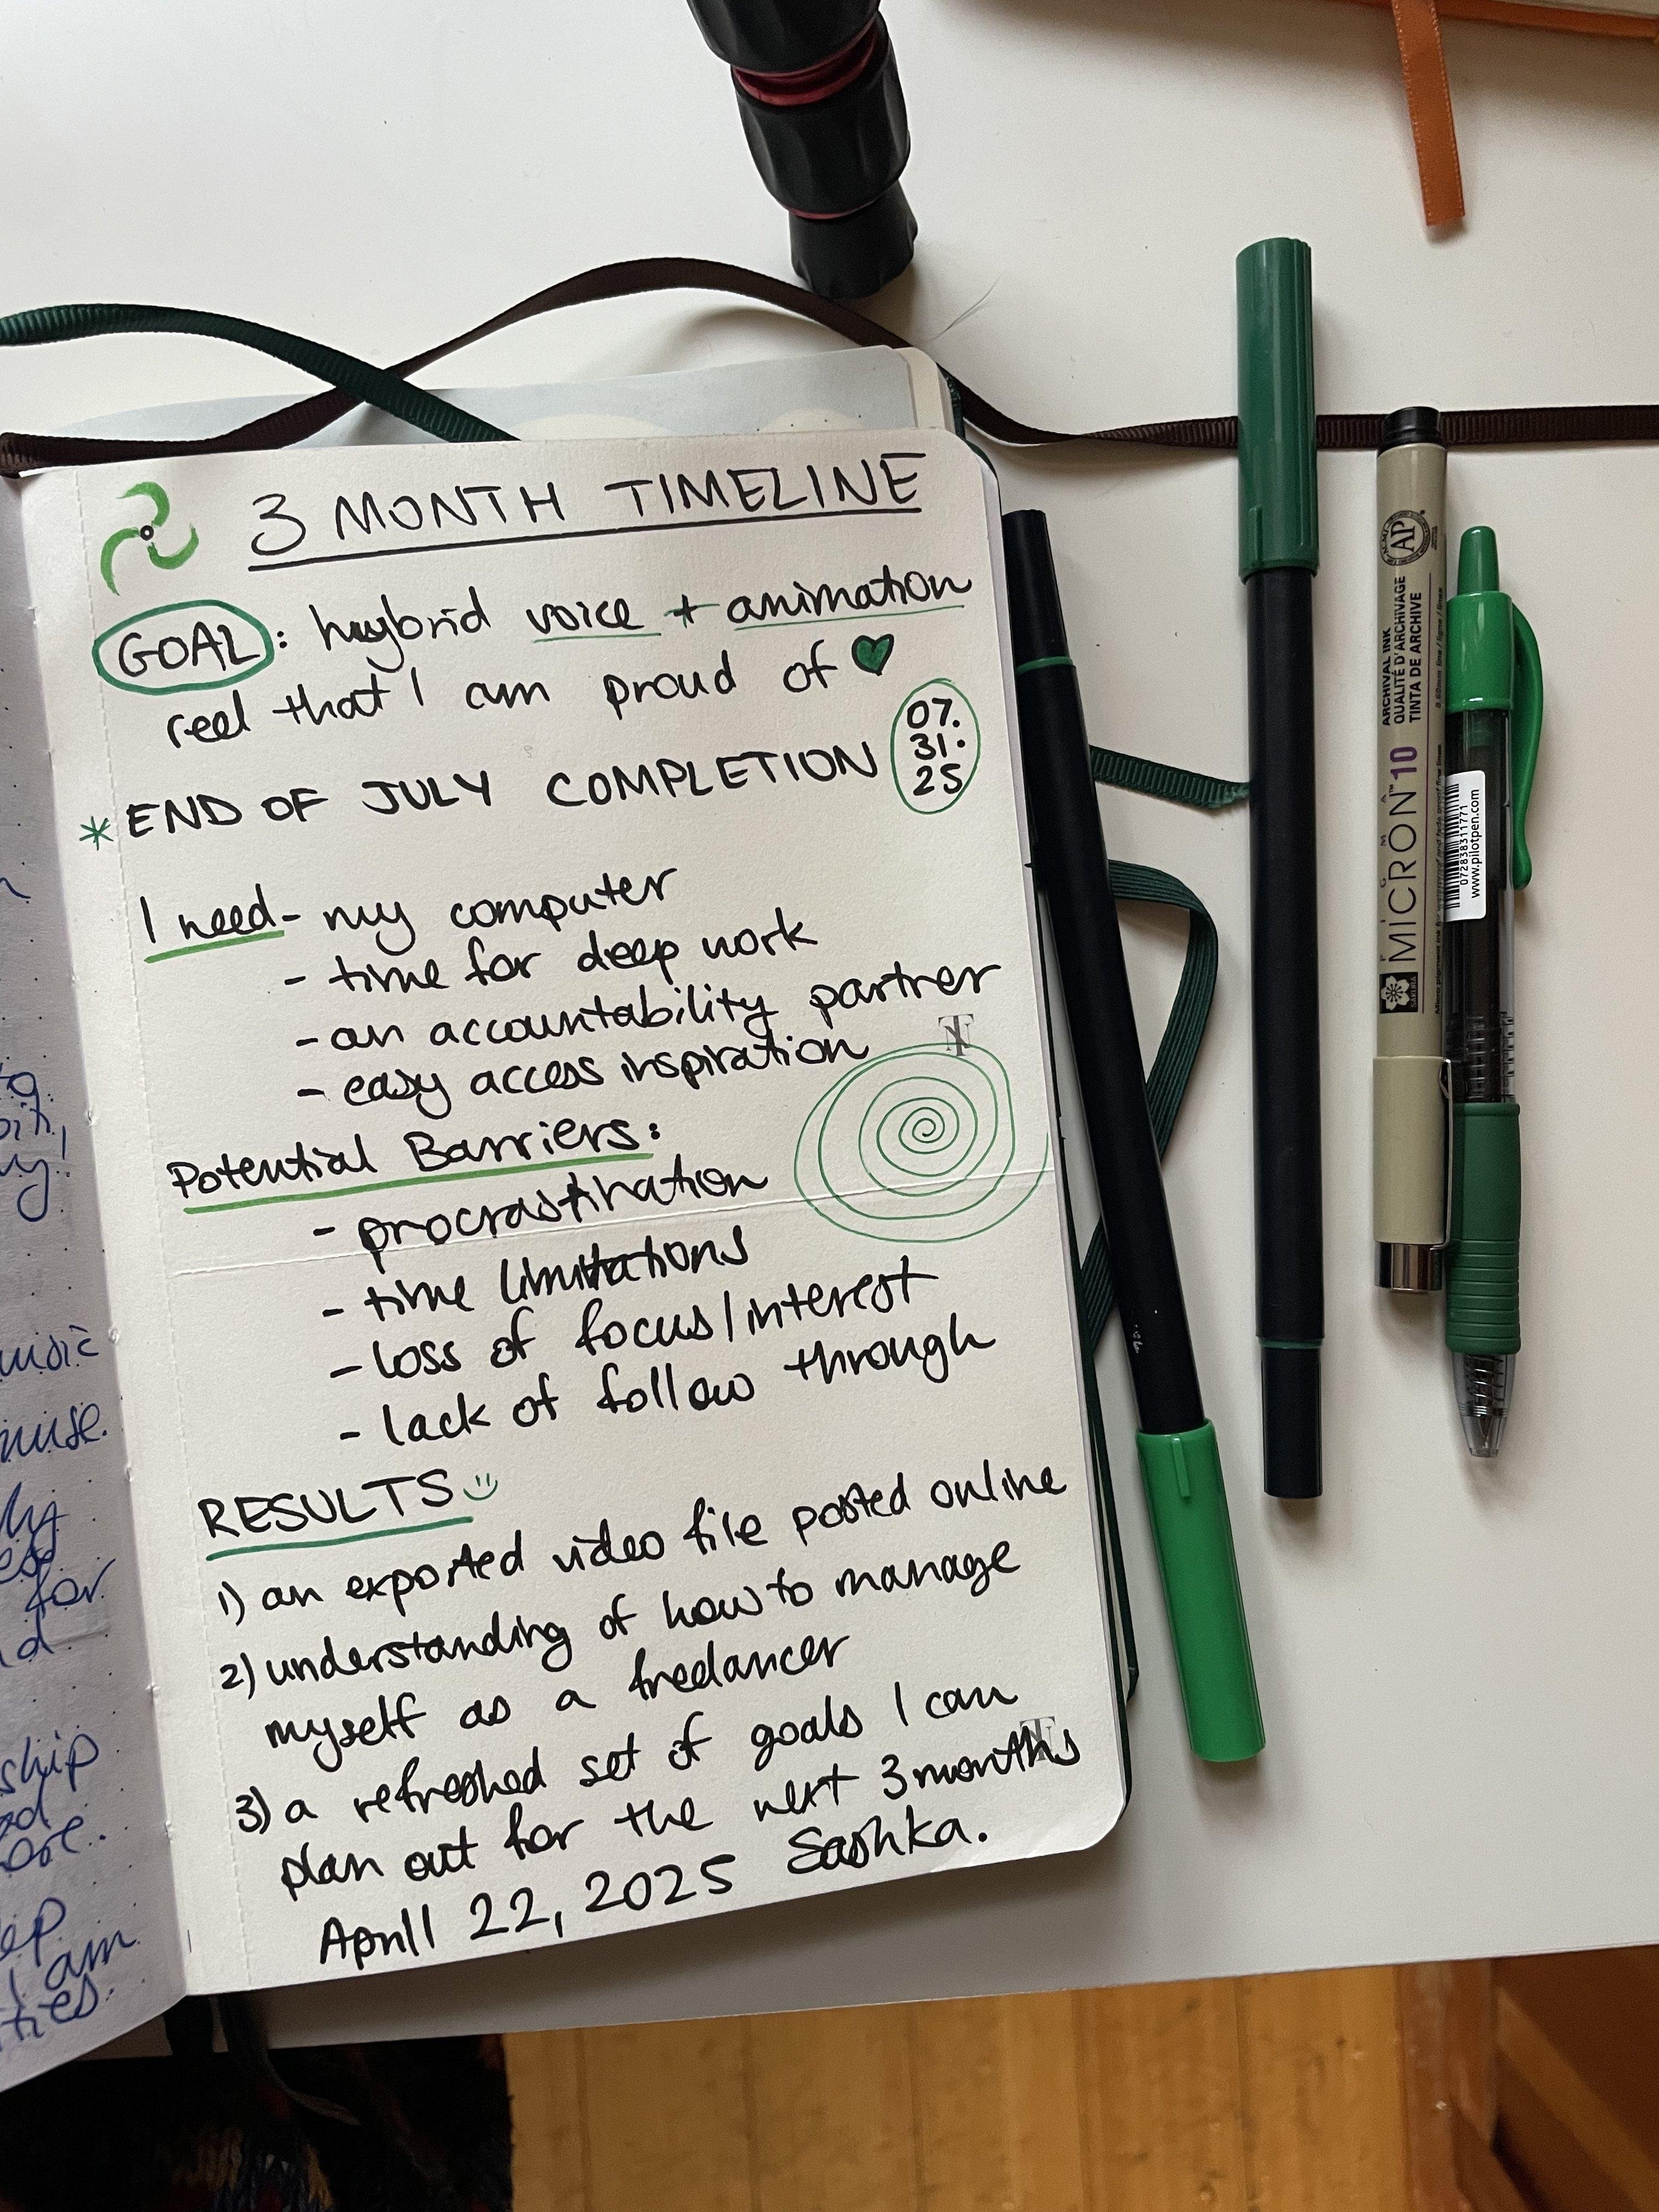 3 MONTH TIMELINE
GOAL: hybrid voice + animation
reel that I am proud of
07.
31.
25
* END OF JULY COMPLETION
I need - my computer
- time for deep work
- an accountability partner
- easy access inspiration
Potential Barriers:
- procrastination
- time limitations
- loss of focus/interest
- lack of follow through
RESULTS
1) an exported video file posted online
2) understanding of how to manage
myself as a freelancer
3) a refreshed set of goals I can
plan out for the next 3 months
April 22, 2025 Sashka.
music
muse.
for
ship
I am
ties.
AP
ARCHIVAL INK
QUALITÉ D'ARCHIVAGE
TINTA DE ARCHIVE
PIGMA
MICRON™ 10
SAKURA
072838311771
www.pilotpen.com